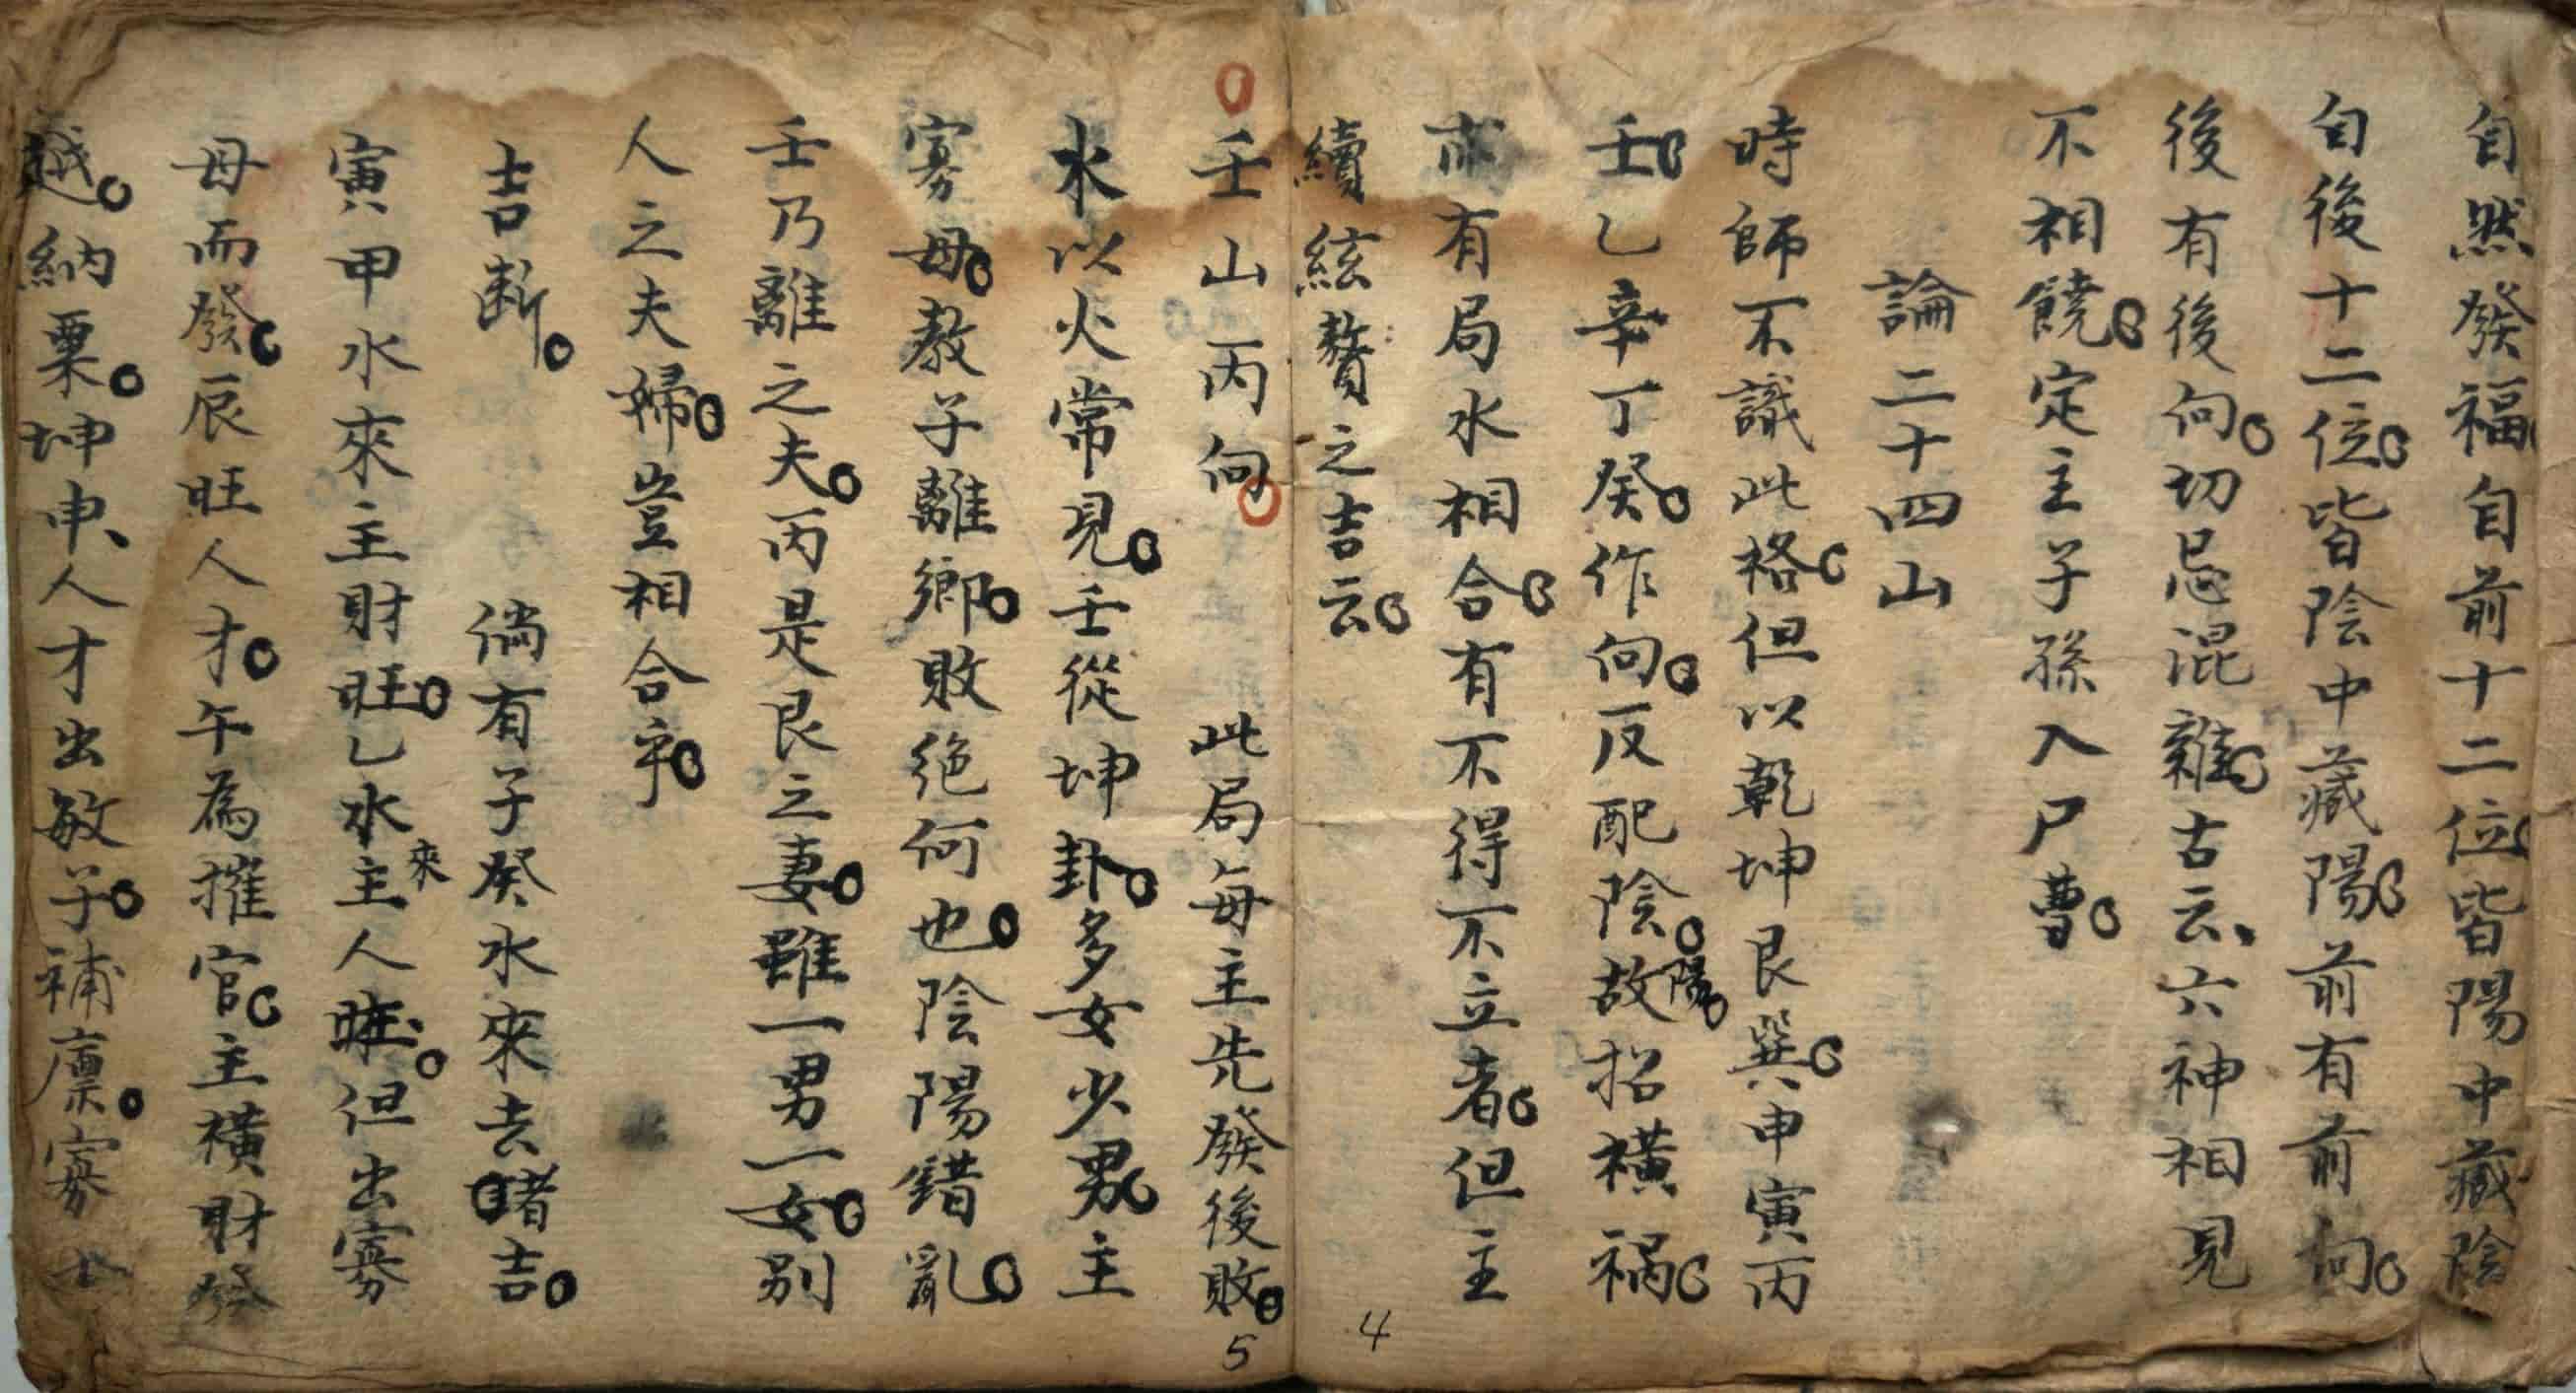 自然發福自前十二位皆陽中藏陰
自後十二位皆陰中藏陽前有前向
後有後向切忌混雜古云六神相見
不相饒定主子孫入尸曹
論二十四山
時師不識此格但以乾坤艮巽申寅丙
壬乙辛丁癸作向反配陰陽故招橫禍
亦有局水相合有不得不立者但主
續絃贅之吉云
4
壬山丙向 此局每主先發後敗
水以火常見壬從坤卦多女少男主
寡母教子離鄉敗絶何也陰陽錯亂
壬乃離之夫丙是艮之妻雖一男一女別
人之夫婦豈相合乎
吉断 倘有子癸水來去睹吉
寅甲水來主財旺乙水來主人旺但出寡
母而發辰旺人才午為摧官主橫財發
越納粟坤申人才出敏子補廪寡
5